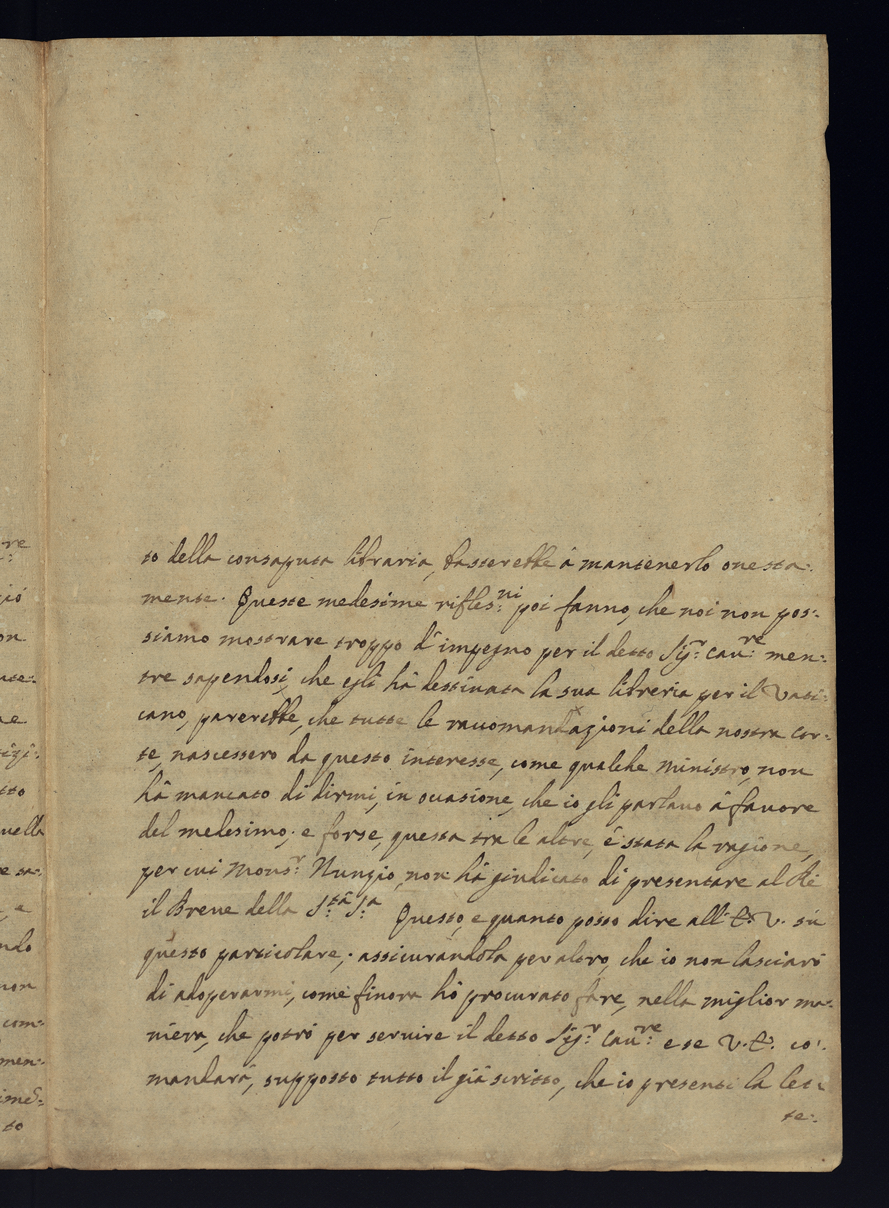 to della consaputa libraria, basterebbe à mantenerlo onesta:
mente. Queste medesime rifles:ni poi fanno, che noi non pos:
siamo mostrare troppo d'impegno per il detto Sig:r Cau:re men:
tre sapendosi, che egli hà destinata la sua libreria per il Vati:
cano, parerebbe, che tutte le raccomandazioni della nostra cor:
te, nascessero da questo interesse, come qualche ministro, non
hà mancato di dirmi, in occasione, che io gli parlavo à favore
del medesimo; e forse, questa tra le altre, è stata la ragione,
per cui Mons:r Nunzio, non hà giudicato di presentare al Rè
il Breve della S:tà S:a Questo, e quanto posso dire all' E: V. sù
questo particolare; assicurandola per altro, che io non lasciarò
di adoperarmi, come finora hò procurato fare, nella miglior ma:
niera, che potrò per servire il detto Sig:r Cau:re e se V. E: co:
mandarà, supposto tutto il già scritto, che io presenti la let:
te:
re
giò
on
ne
tto
uella
e sa:
, e
ndo
non
com:
men:
to